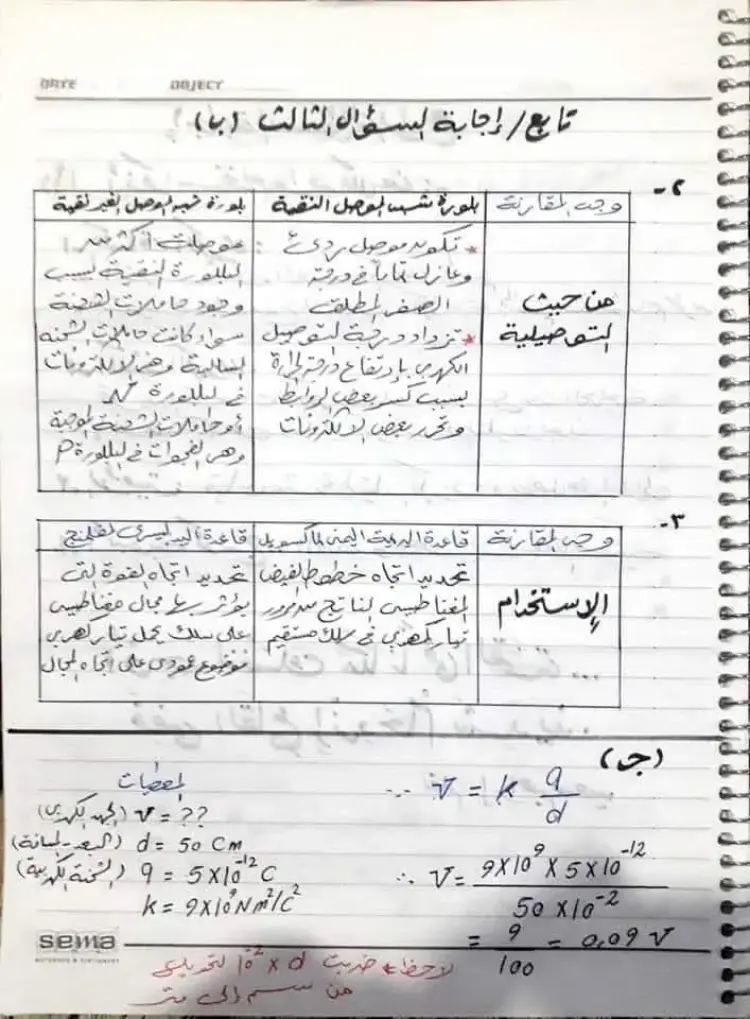 DATE OBJECT
تابع/ إجابة السؤال الثالث (ب)
٢-
وجه المقارنة
بلورة شبه الموصل النقية
بلورة شبه الموصل الغير نقية
من حيث
التوصيلية
* تكون موصل ردئ
وعازل تماماً في درجة
الصفر المطلق
* تزداد درجة التوصيل
الكهربي بإرتفاع درجة الحرارة
بسبب كسر بعض الروابط
وتحرر بعض الالكترونات
موصلة أكثر من
البللورة النقية بسبب
وجود حاملات الشحنة
سواء كانت حاملات الشحنة
السالبة وهي الالكترونات
في البللورة
أو حاملات الشحنة الموجبة
وهي الفجوات في البللورة P
٣-
وجه المقارنة
قاعدة البريمة اليمنى لماكسويل
قاعدة اليد اليسرى لفلمنج
الإستخدام
تحديد اتجاه خطوط الفيض
المغناطيسي الناتج من مرور
تيار كهربي في سلك مستقيم
تحديد اتجاه القوة التي
يؤثر بها مجال مغناطيسي
على سلك يحمل تيار كهربي
موضوع عمودي على اتجاه المجال
(جـ)
المعطيات
V = ?? (الجهد الكهربي)
d = 50 Cm (البعد - المسافة)
q = 5×10⁻¹² C (الشحنة الكهربية)
k = 9×10⁹ Nm²/C²
∵ V = k q/d
∴ V = 9×10⁹ × 5×10⁻¹² / 50×10⁻²
= 9/100 = 0,09 V
sema
لاحظ * ضربت d × 10⁻² لتحويل
من سم إلى متر